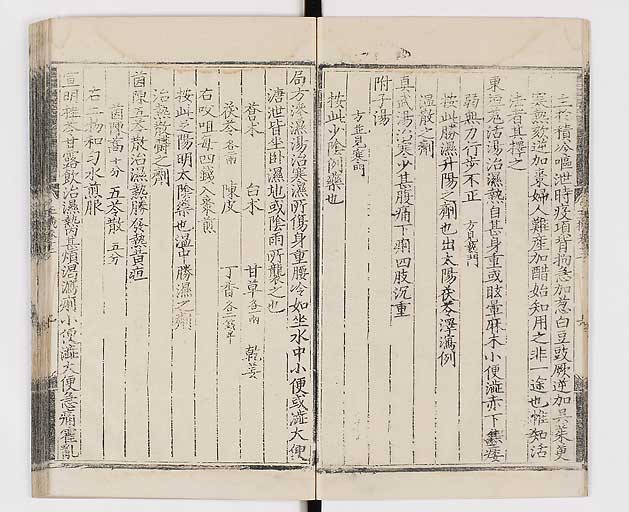 主於積冷嘔泄時疫項背拘急加葱白豆豉厥逆加吳茱萸
寒熱欬逆加棗婦人難産加醋始知用之非一途也惟知活
法者其擇之
東垣羌活湯治濕熱自甚身重或眩暈麻木小便澁赤下焦痿
弱無力行步不正 方見痿門
按此勝濕升陽之劑也出太陽茯苓澤瀉例
溫散之劑
真武湯治寒少甚腹痛下痢四肢沉重
附子湯
方並見寒門
按此少陰例藥也
局方滲濕湯治寒濕所傷身重腰冷如坐水中小便或澁大便
溏泄皆坐卧濕地或陰雨所襲之也
蒼朮 白朮 甘草各一兩 乾姜
茯苓各兩 陳皮 丁香各一錢半
右㕮咀每四錢入棗煎
按此足陽明太陰藥也溫中勝濕之劑
治熱散欝之劑
茵陳五苓散治濕熱勝發熱黃疸
茵陳蒿十分 五苓散五分
右二物和勻水煎服
宣明桂苓甘露飲治濕熱內甚煩渴瀉利小便澁大便急痛霍亂